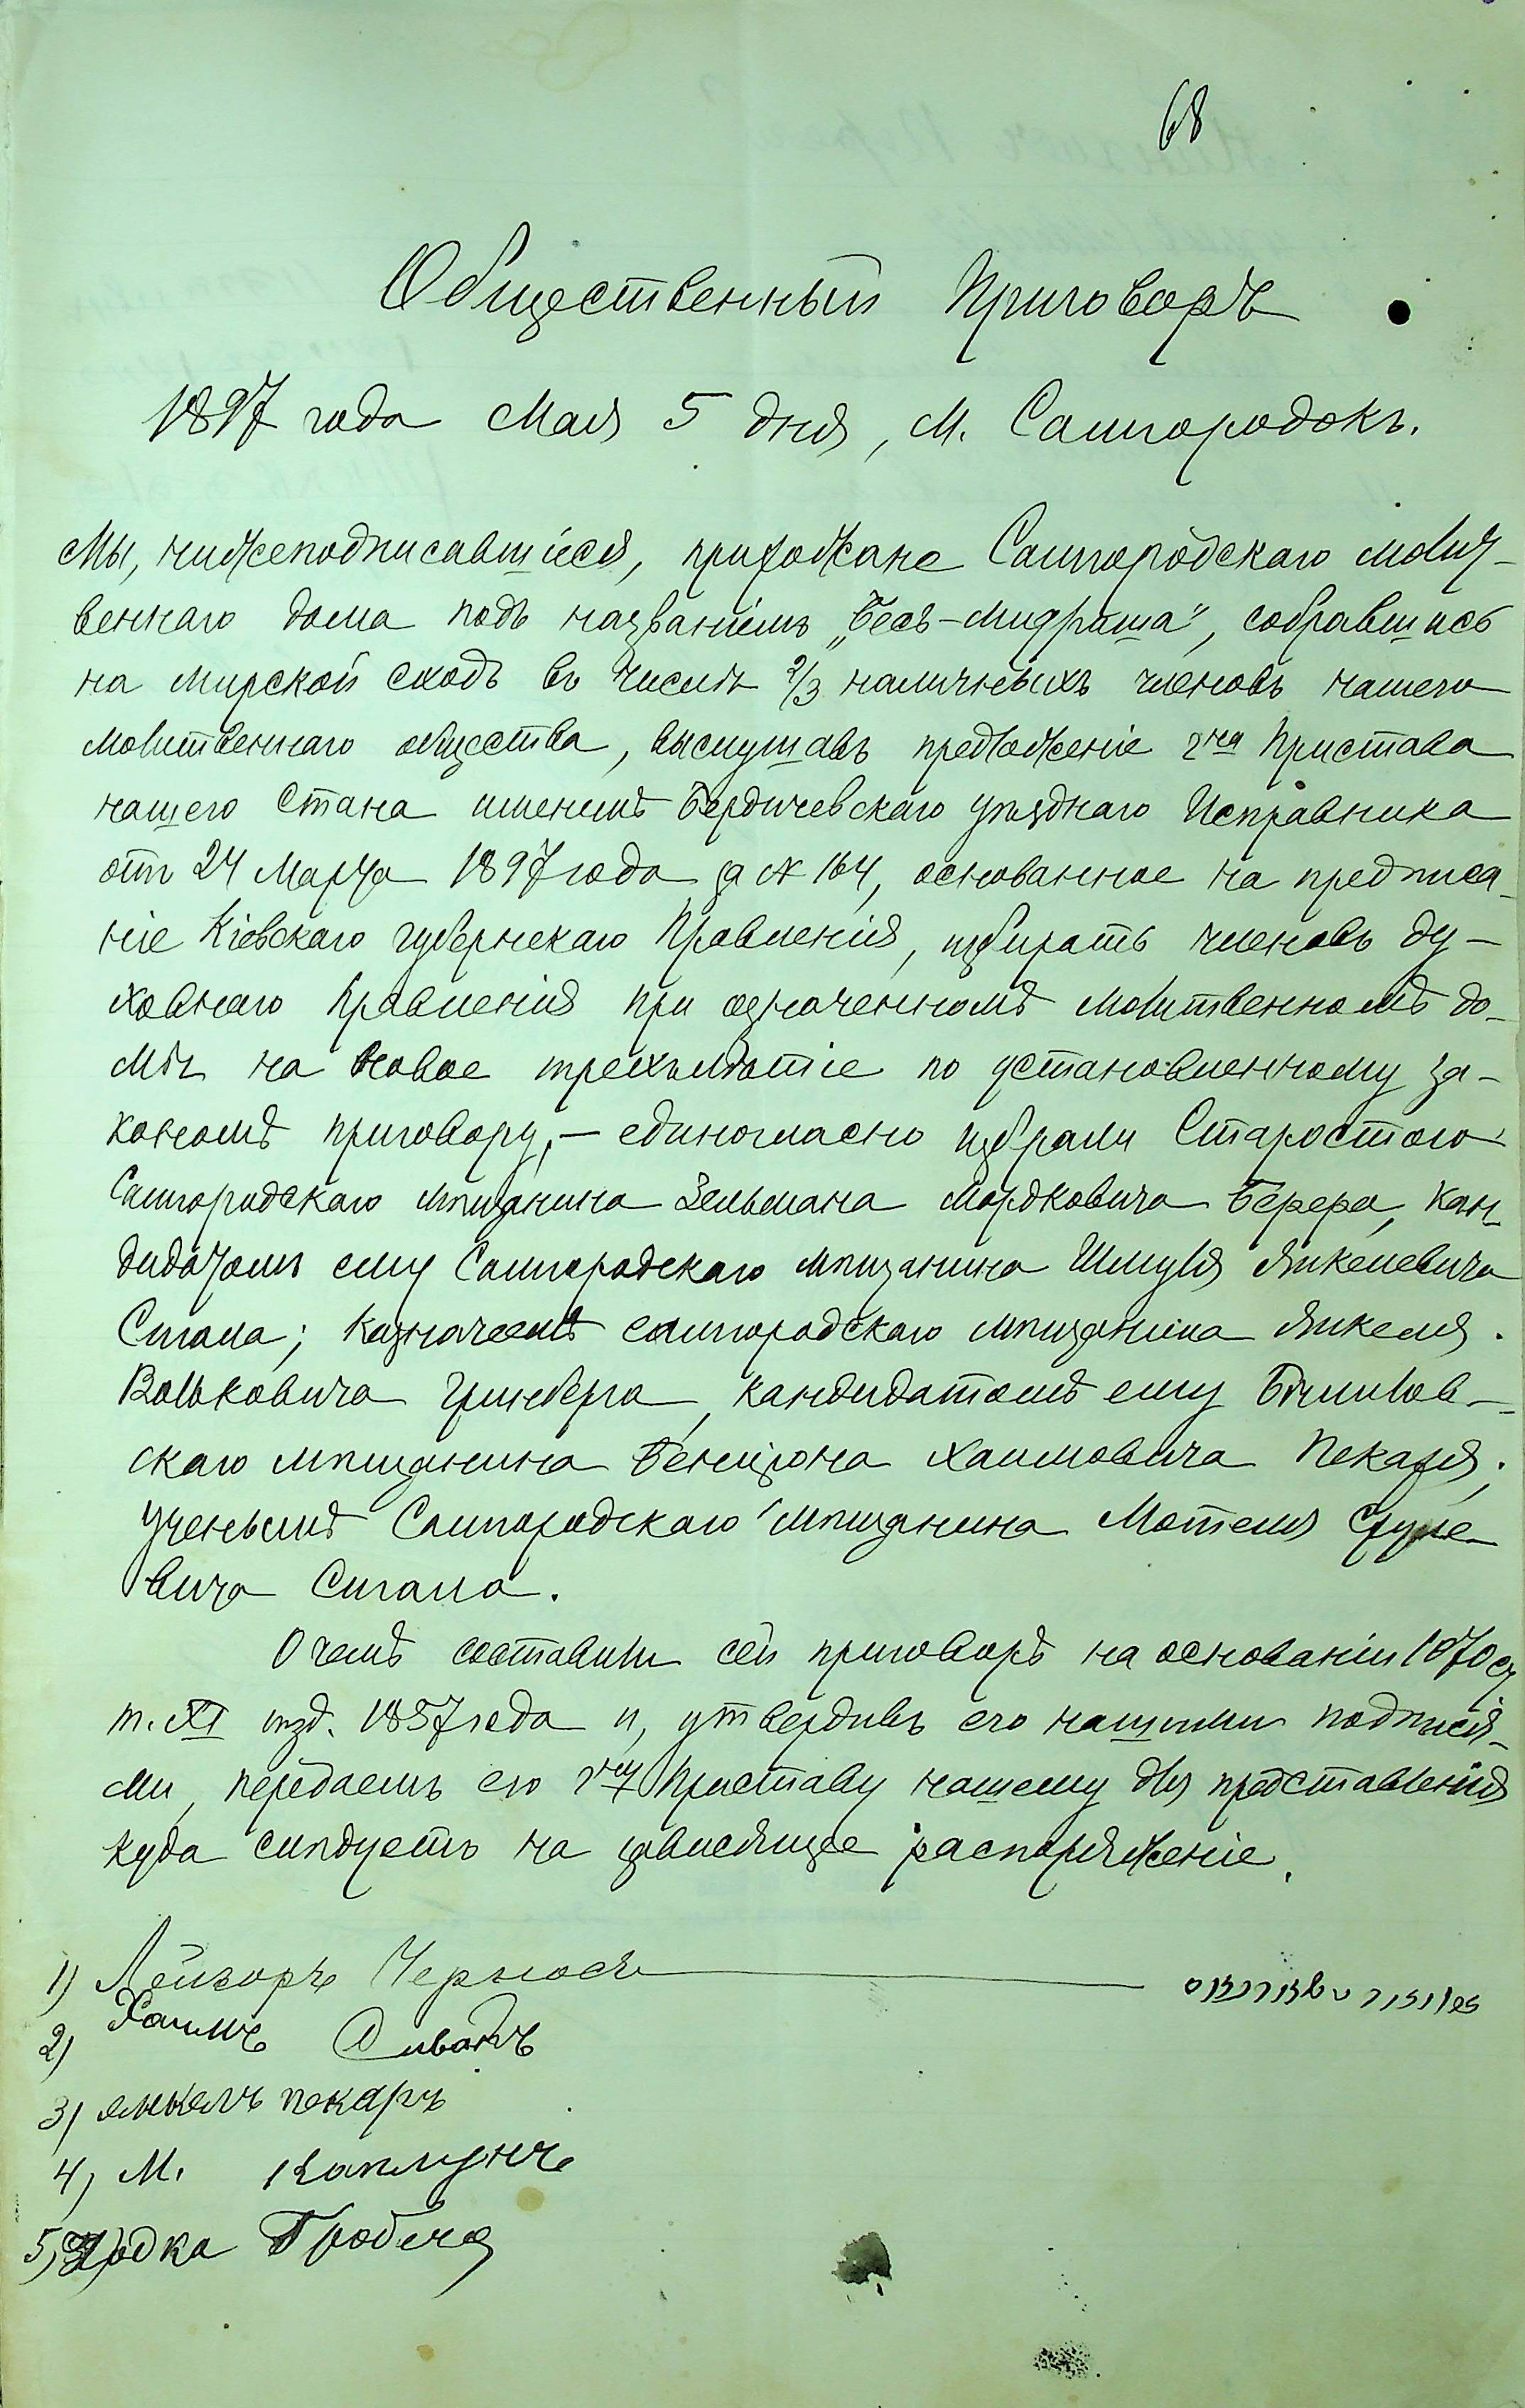 68
Общественный Приговоръ
1897 года Мая 5 дня, м. Самгородокъ.
Мы, нижеподписавшіеся, прихожане Самгородскаго молит-
веннаго дома подъ названіемъ „Бесъ-Мидраша", собравшись
на мирской сходъ въ числѣ 2/3 наличныхъ членовъ нашего
молитвеннаго общества, выслушавъ предложеніе гна Пристава
нашего стана именемъ Бердичевскаго уѣзднаго Исправника
отъ 24 Марта 1897 года за № 164, основанное на предписа-
ніе Кіевскаго Губернскаго Правленія, избирать членовъ ду-
ховнаго правленія при означенномъ молитвенномъ до-
мѣ на новое трехлѣтіе по установленному за-
кономъ приговору, – единогласно избрали Старостою
Самгородскаго мѣщанина Зельмана Мордковича Берера, кан-
дидатомъ ему Самгородскаго мѣщанина Шмуля Янкелевича
Сигала; казначеемъ самгородскаго мѣщанина Янкеля
Вольковича Гринберга, кандидатомъ ему Бѣлилов-
скаго мѣщанина Бенціона Хаимовича Пекаря;
ученымъ Самгородскаго мѣщанина Мотеля Сруле-
вича Сигала.
О чемъ составили сей приговоръ на основаніи 1070 ст
т. XI изд. 1857 года и, утвердивъ его нашими подпися-
ми, передаемъ его гну Приставу нашему для представленія
куда слѣдуетъ на зависящее распоряженіе.
1) Лейзоръ
2) Хаимъ
3) янкель пекаръ
4) М. Каплунъ
5)